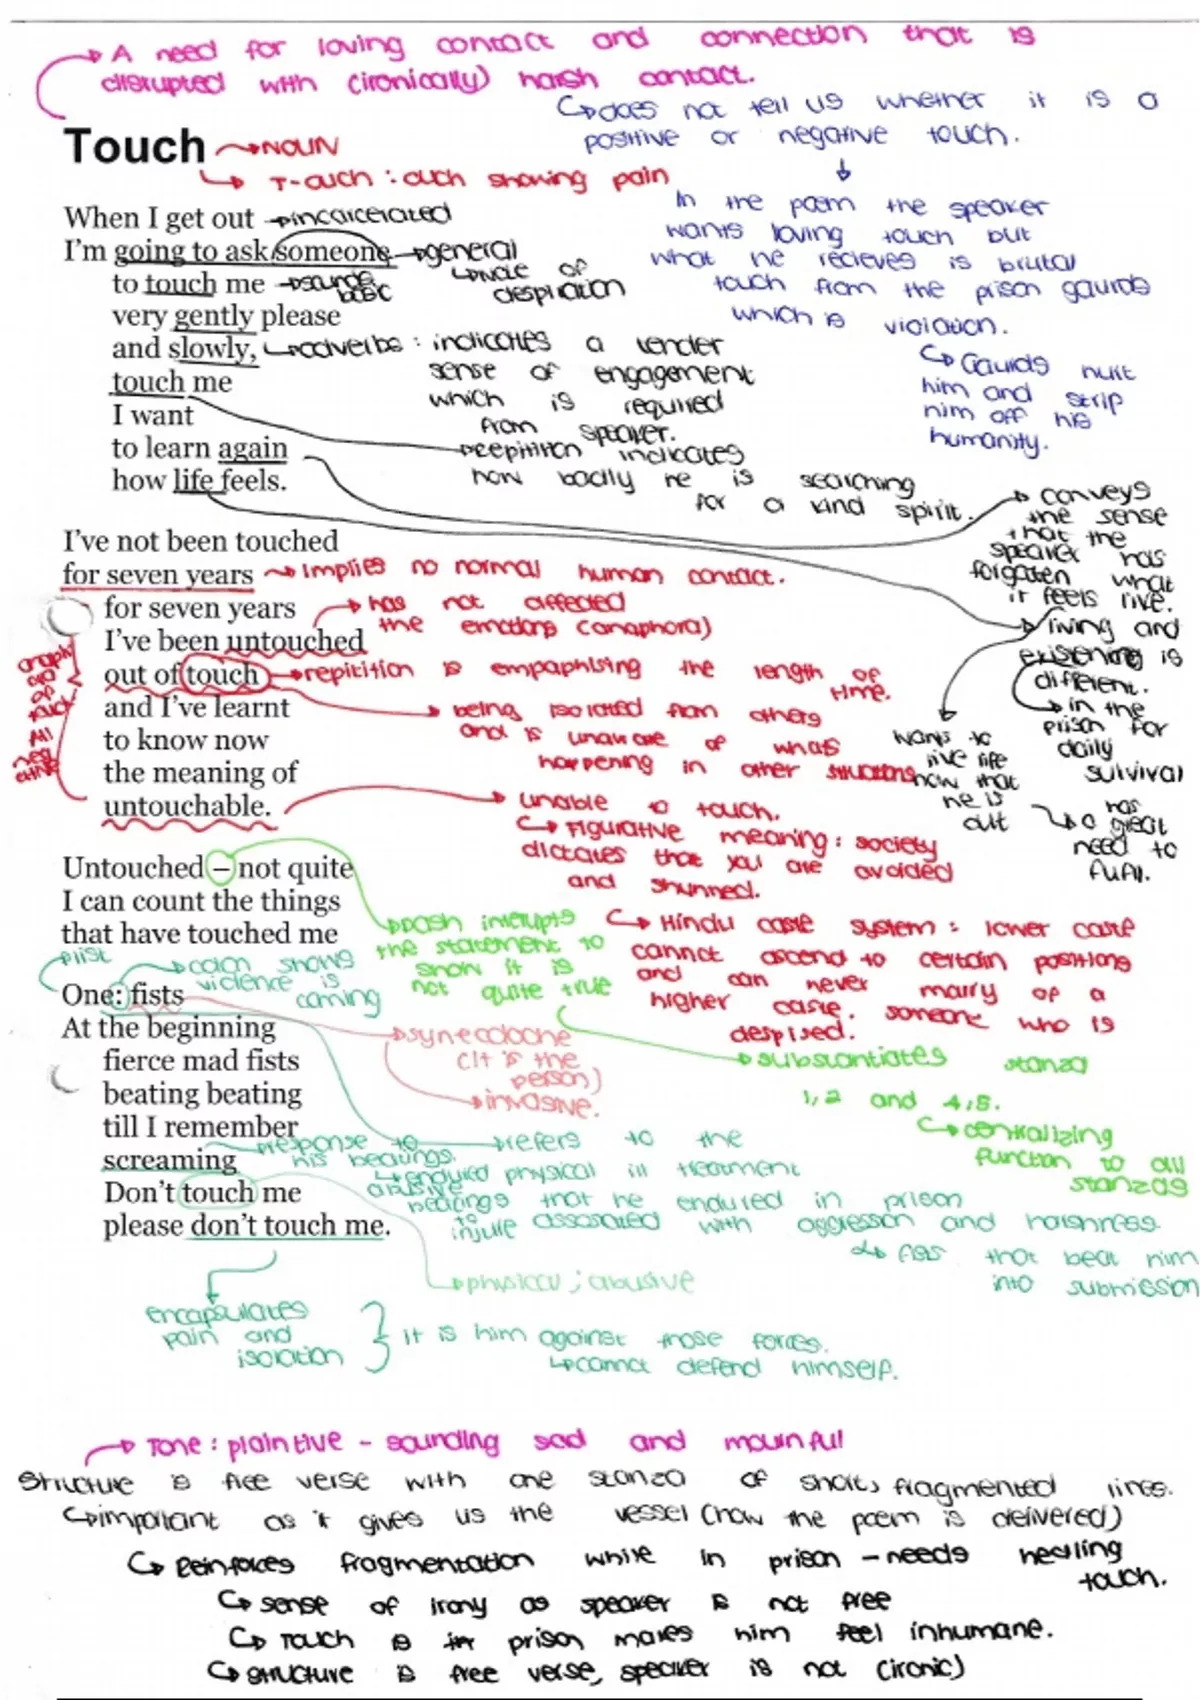 A need for loving contact and connection that is
disrupted with (ironically) harsh contact.
does not tell us whether it is a
positive or negative touch.
Touch
NOUN
T-ouch : ouch showing pain
In the poem the speaker
wants loving touch but
what he recieves is brutal
touch from the prison gaurds
which is violation.
Gaurds hurt
him and strip
him off his
humanity.
When I get out
incarcerated
I'm going to ask someone
general
to touch me
sounds
basic
note of
despiration
very gently please
and slowly,
adverbs : indicates a tender
sense of engagement
which is required
from speaker.
touch me
I want
to learn again
how life feels.
repitition indicates
how badly he is searching
for a kind spirit.
conveys
the sense
that the
speaker has
forgotten what
it feels like.
living and
existening is
different.
in the
prison for
daily
survival
wants to
live life
now that
he is
out
has
a great
need to
fufil.
I've not been touched
for seven years
Implies no normal human contact.
for seven years
has not affected
the emotions (anaphora)
I've been untouched
out of touch
repitition is empaphising the length of
time.
and I've learnt
being isolated from others
and is unaware of whats
happening in other situations
to know now
the meaning of
untouchable.
unable to touch.
Figurative meaning : society
dictates that you are avoided
and shunned.
Hindu caste system : lower caste
cannot ascend to certain positions
and can never marry of a
higher caste. someone who is
despised.
Untouched – not quite
I can count the things
that have touched me
Dash interupts
the statement to
show it is
not quite true
substantiates stanza
1, 2 and 4, 5.
centralizing
function to all
stanzas
list
colon shows
violence is
coming
One: fists
synecdoche
(it is the
person)
invasive.
At the beginning
fierce mad fists
beating beating
till I remember
screaming
response to
his beatings.
refers to the
endured physical ill treatment
abusive
beatings that he endured in prison
to
injure associated with aggression and harshness.
fists that beat him
into submission
Don't touch me
please don't touch me.
physical ; abusive
encapsulates
pain and
isolation
it is him against those forces.
cannot defend himself.
Tone : plaintive - sounding sad and mournful
Structure is free verse with one stanza of short, fragmented lines.
important as it gives us the vessel (how the poem is delivered)
Reinforces fragmentation while in prison - needs healing
touch.
sense of irony as speaker is not free
Touch is in prison makes him feel inhumane.
structure is free verse, speaker is not (ironic)